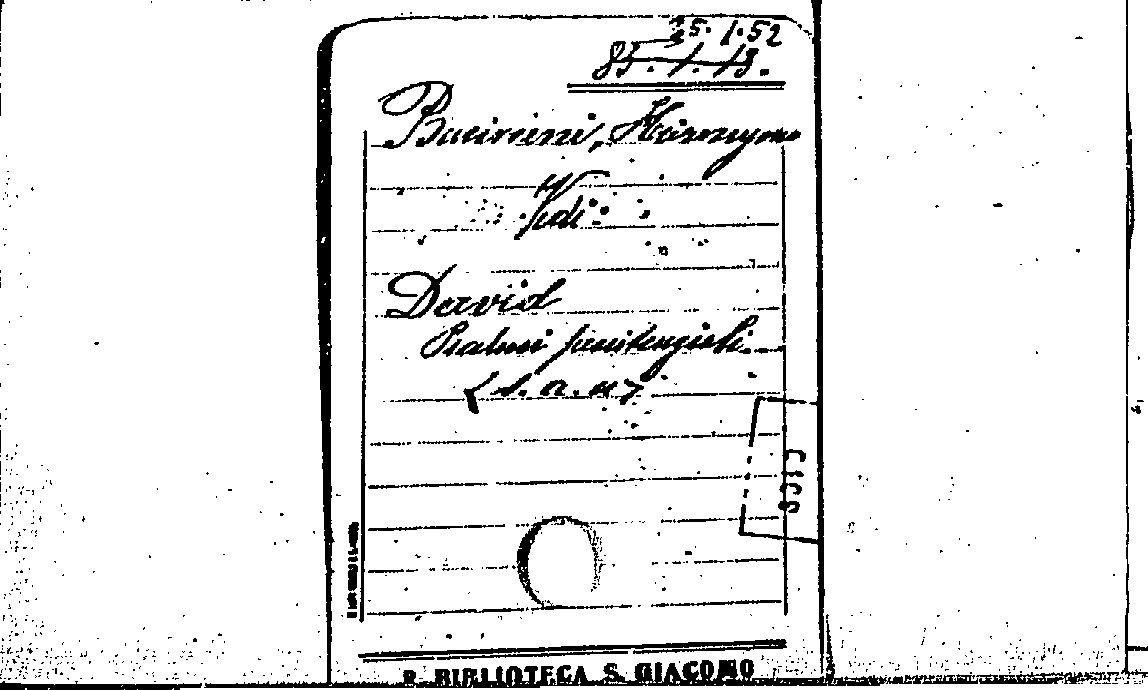 25. 1. 52
85. 1. 13.
Bucirceni, Hieronymo
Vedi:
David
Psalmi penitenziali
(s. a. n)
R. BIBLIOTECA S. GIACOMO